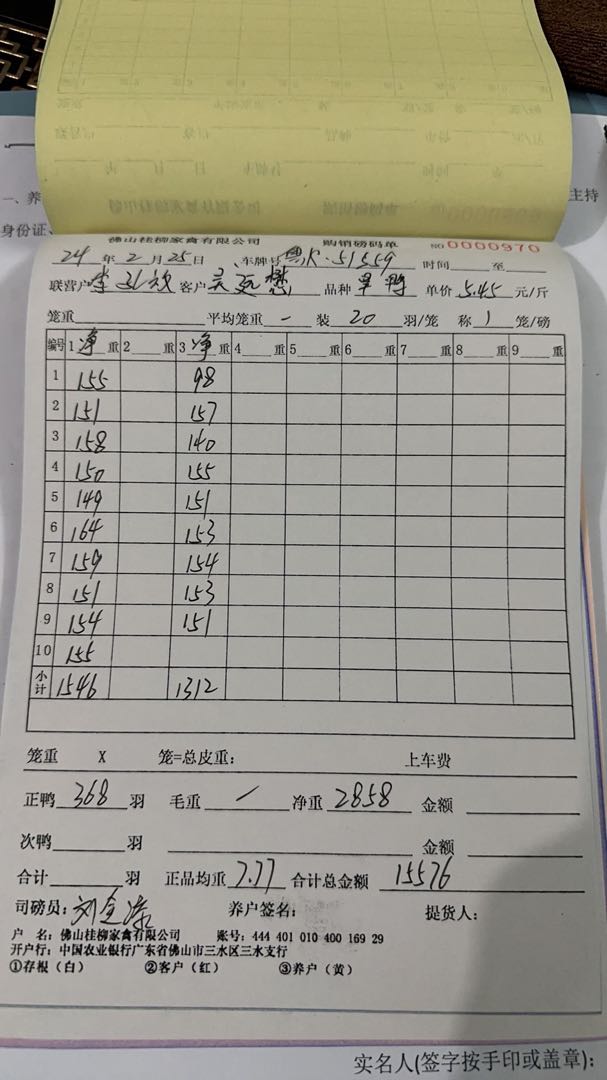 一、养
主持
身份证、
佛山桂柳家禽有限公司 购销磅码单 NO 0000970
24 年 2 月 25 日 车牌号 粤R·51559 时间 至
联营户 客户 吴 懋 品种 单鸭 单价 5.45 元/斤
笼重 平均笼重 — 装 20 羽/笼 称 1 笼/磅
编号 1 净 重 2 重 3 净 重 4 重 5 重 6 重 7 重 8 重 9 重
1 155 98
2 151 157
3 158 140
4 150 155
5 149 151
6 164 153
7 159 154
8 151 153
9 154 151
10 155
小计 1546 1312
笼重 X 笼=总皮重: 上车费
正鸭 368 羽 毛重 / 净重 2858 金额
次鸭 羽 金额
合计 羽 正品均重 7.77 合计总金额 15576
司磅员: 刘金 养户签名: 提货人:
户 名: 佛山桂柳家禽有限公司 账号: 444 401 010 400 169 29
开户行: 中国农业银行广东省佛山市三水区三水支行
①存根(白) ②客户(红) ③养户(黄)
实名人(签字按手印或盖章):